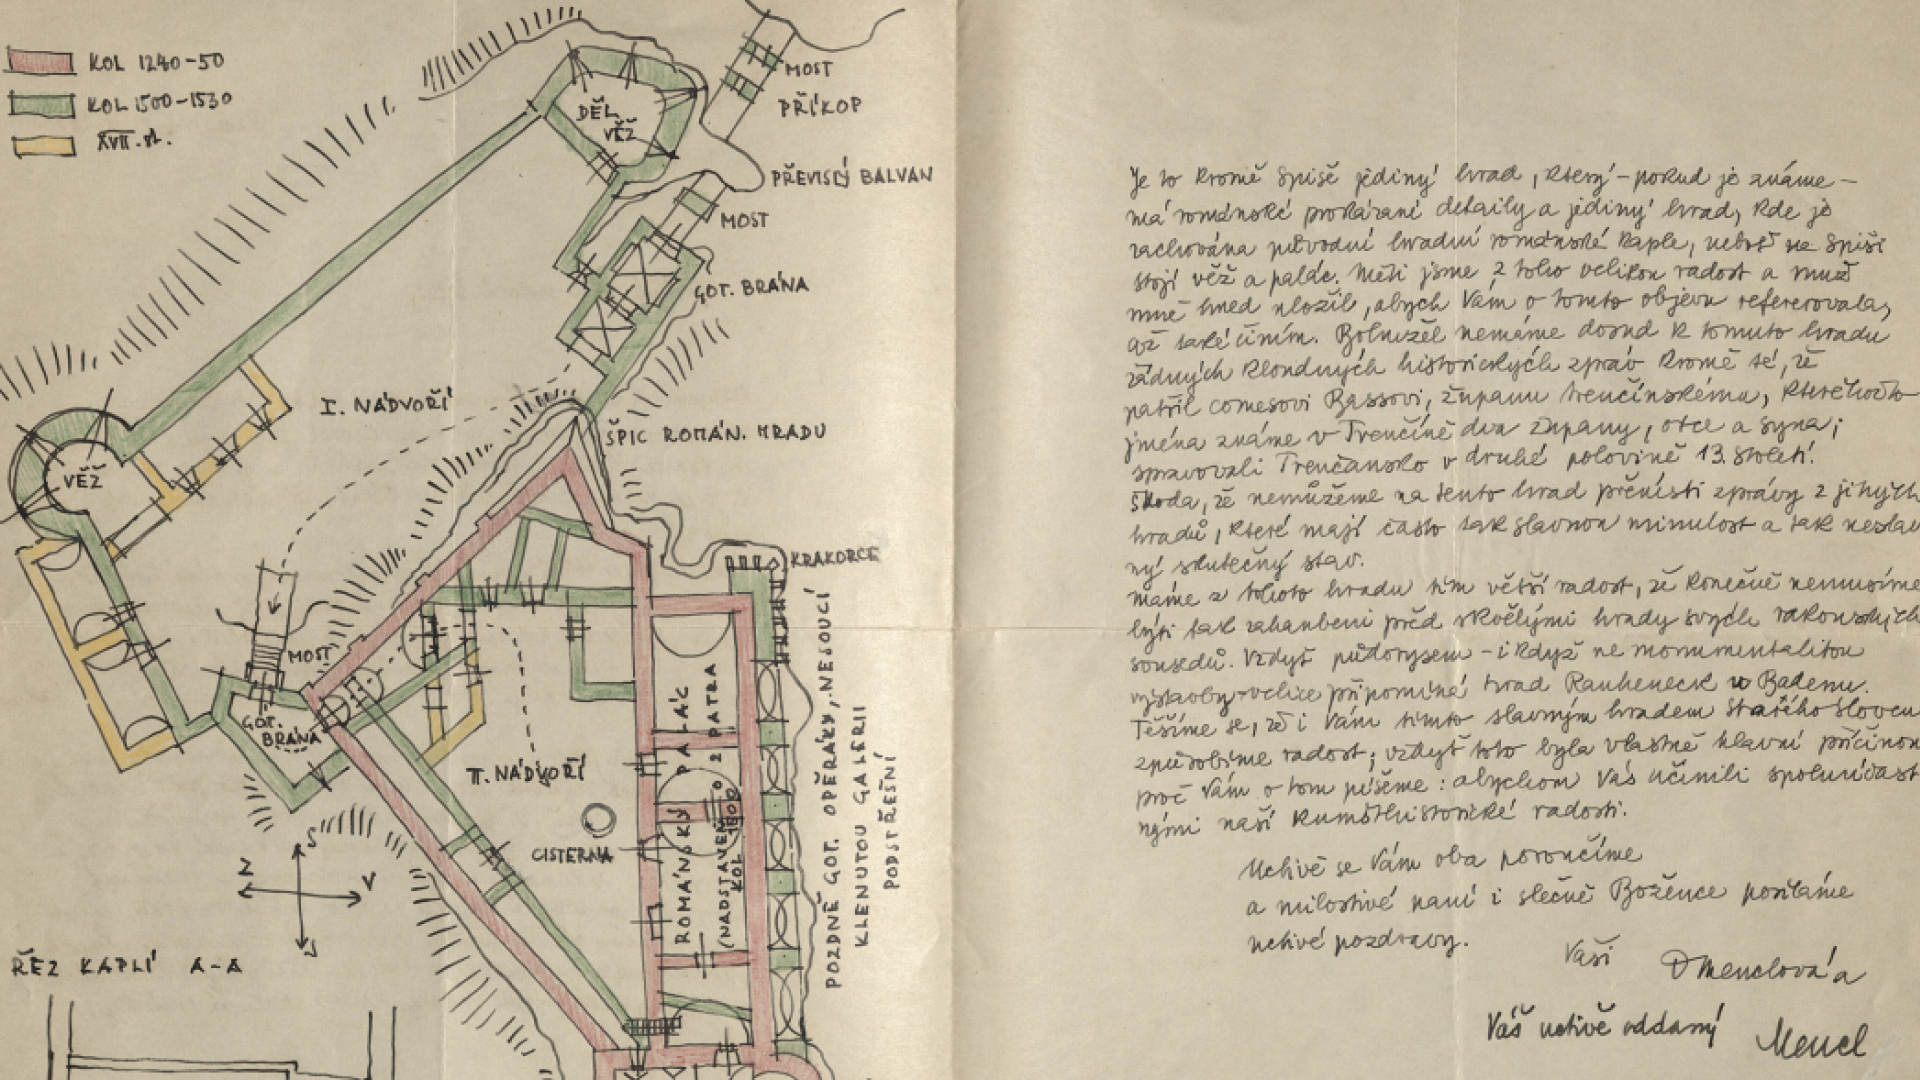 KOL 1240-50
KOL 1500-1530
XVII. st.
MOST
PŘÍKOP
DĚL.
VĚŽ
PŘEVISLÝ BALVAN
MOST
GOT. BRÁNA
I. NÁDVOŘÍ
ŠPIC ROMÁN. HRADU
VĚŽ
KRAKORCE
MOST
GOT.
BRÁNA
II. NÁDVOŘÍ
CISTERNA
ROMÁNSKÝ PALÁC
(NADSTAVEN O 2 PATRA
KOL 1500)
POZDNĚ GOT. OPĚRÁKY, NESOUCÍ
KLENUTOU GALERII
PODSTŘEŠNÍ
S
Z
V
J
ŘEZ KAPLÍ A-A
Je to kromě Spiše jediný hrad, který – pokud je známe –
má románské prokázané detaily a jediný hrad, kde je
zachována původní hradní románská kaple, neboť na Spiši
stojí věž a palác. Měli jsme z toho velikou radost a muž
mně hned uložil, abych Vám o tomto objevu referovala,
což také činím. Bohužel nemáme dosud k tomuto hradu
žádných kloudných historických zpráv kromě té, že
patřil comesovi Bassovi, županu trenčínskému, kteréhožto
jména známe v Trenčíně dva župany, otce a syna;
spravovali Trenčansko v druhé polovině 13. století.
Škoda, že nemůžeme na tento hrad přenésti zprávy z jiných
hradů, které mají často tak slavnou minulost a tak neslav
ný skutečný stav.
Máme z tohoto hradu tím větší radost, že konečně nemusíme
býti tak zahanbeni před skvělými hrady svých rakouských
sousedů. Vždyť půdorysem – i když ne monumentalitou
výstavby – velice připomíná hrad Rauheneck u Badenu.
Těšíme se, že i Vám tímto slavným hradem starého Sloven
způsobíme radost; vždyť toto byla vlastně hlavní příčinou
proč Vám o tom píšeme: abychom Vás učinili spoluúčast
nými naší kumšthistorické radosti.
Uctivě se Vám oba poroučíme
a milostivé paní i slečně Božence posíláme
uctivé pozdravy.
Vaši
DMenclová a
Váš uctivě oddaný
Mencl